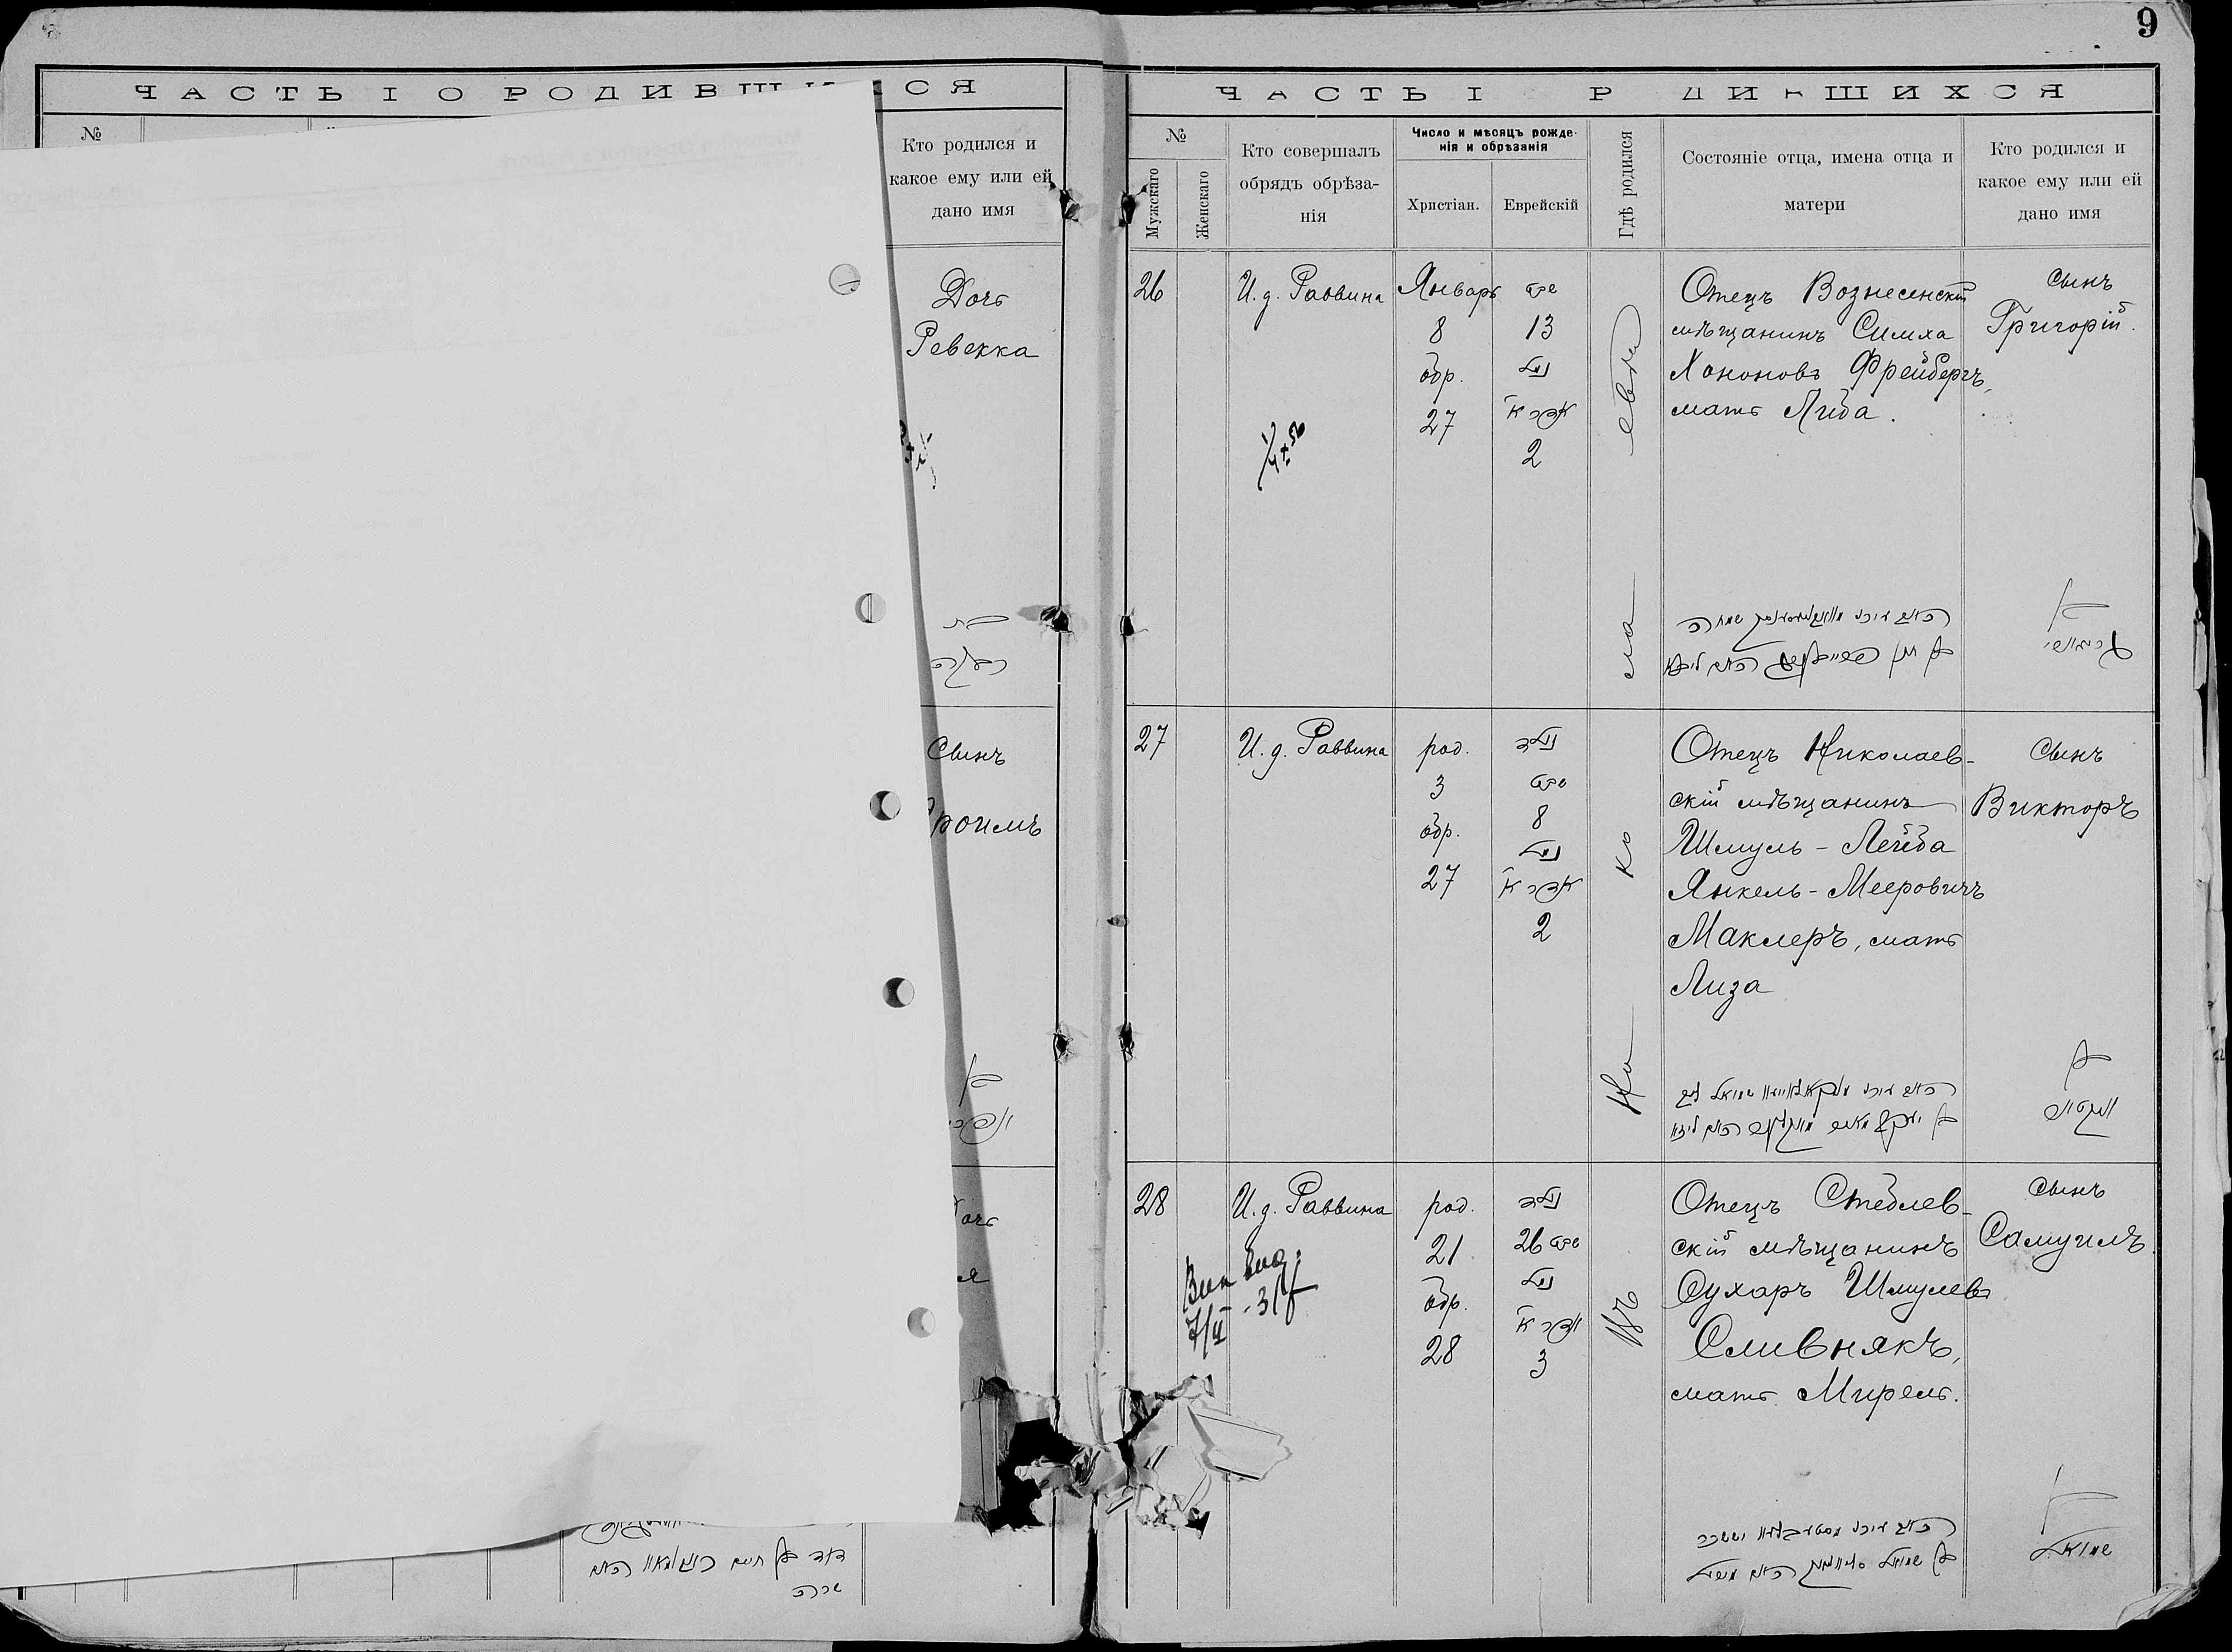 ЧАСТЬ I О РОДИВШИХСЯ
№
Кто родился и
какое ему или ей
дано имя
Дочь
Ревекка
בת
רבקה
Сынъ
בן
שרה
9
ЧАСТЬ I Р ДИВШИХСЯ
№
Мужскаго
Женскаго
Кто совершалъ
обрядъ обрѣза-
нія
Число и мѣсяцъ рожде-
нія и обрѣзанія
Христіан.
Еврейскій
Гдѣ родился
Состояніе отца, имена отца и
матери
Кто родился и
какое ему или ей
дано имя
26
И. д. Раввина
Январь
8
обр.
27
שבט
13
נימל
אדר א
2
Отецъ Вознесенскій
мѣщанинъ Симха
Хононовъ Фрейбергъ,
мать Либа.
Сынъ
Григорій.
בן
27
И. д. Раввина
род.
3
обр.
27
נולד
שבט
8
נימל
אדר א
2
Отецъ Николаев-
скій мѣщанинъ
Шмуль-Лейба
Янкель-Мееровичъ
Маклеръ, мать
Лиза
Сынъ
Викторъ
בן
וויקטור
28
И. д. Раввина
род.
21
обр.
28
נולד
26 שבט
נימל
אדר א
3
Отецъ Стеблев-
скій мѣщанинъ
Сухаръ Шмулевъ
Сливнякъ,
мать Мирель.
Сынъ
Самуилъ
בן
שמואל
Въ Николаевѣ